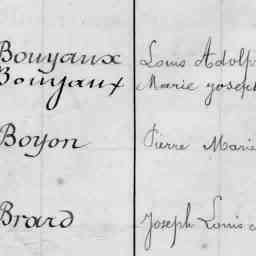 Bouyaux Louis Adolp
Bouyaux Marie Joseph
Boyon Pierre Marie
Brard Joseph Louis